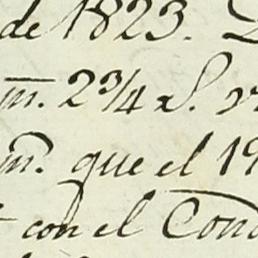 de 1823.
m. 2¾ d.
m. que el 19
con el Con